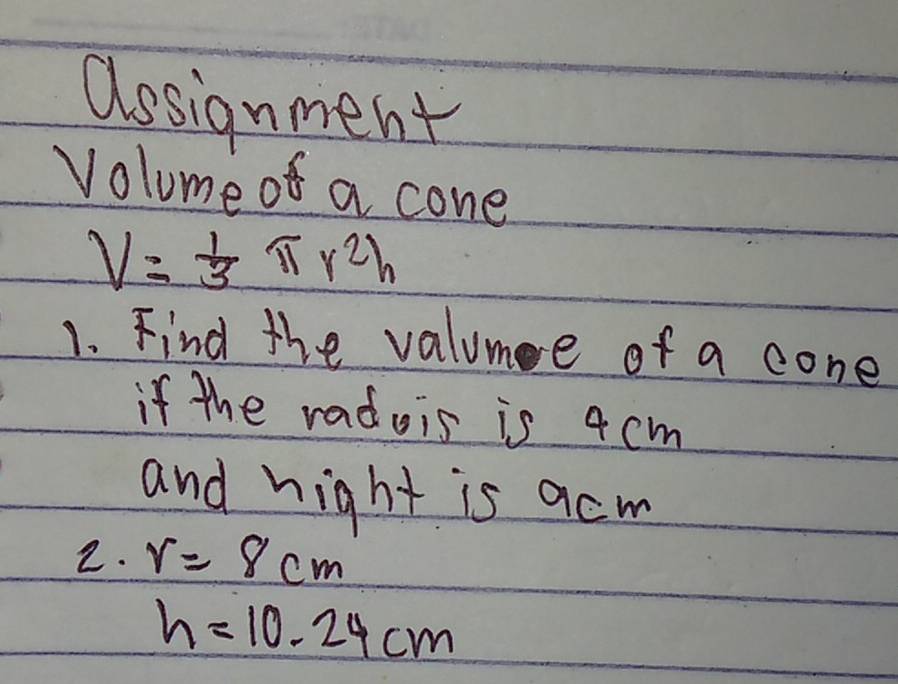 Assignment
Volume of a cone
V = 1/3 π r²h
1. Find the valumee of a cone
if the raduis is 4 cm
and hight is 9cm
2. r = 8 cm
h = 10.24 cm